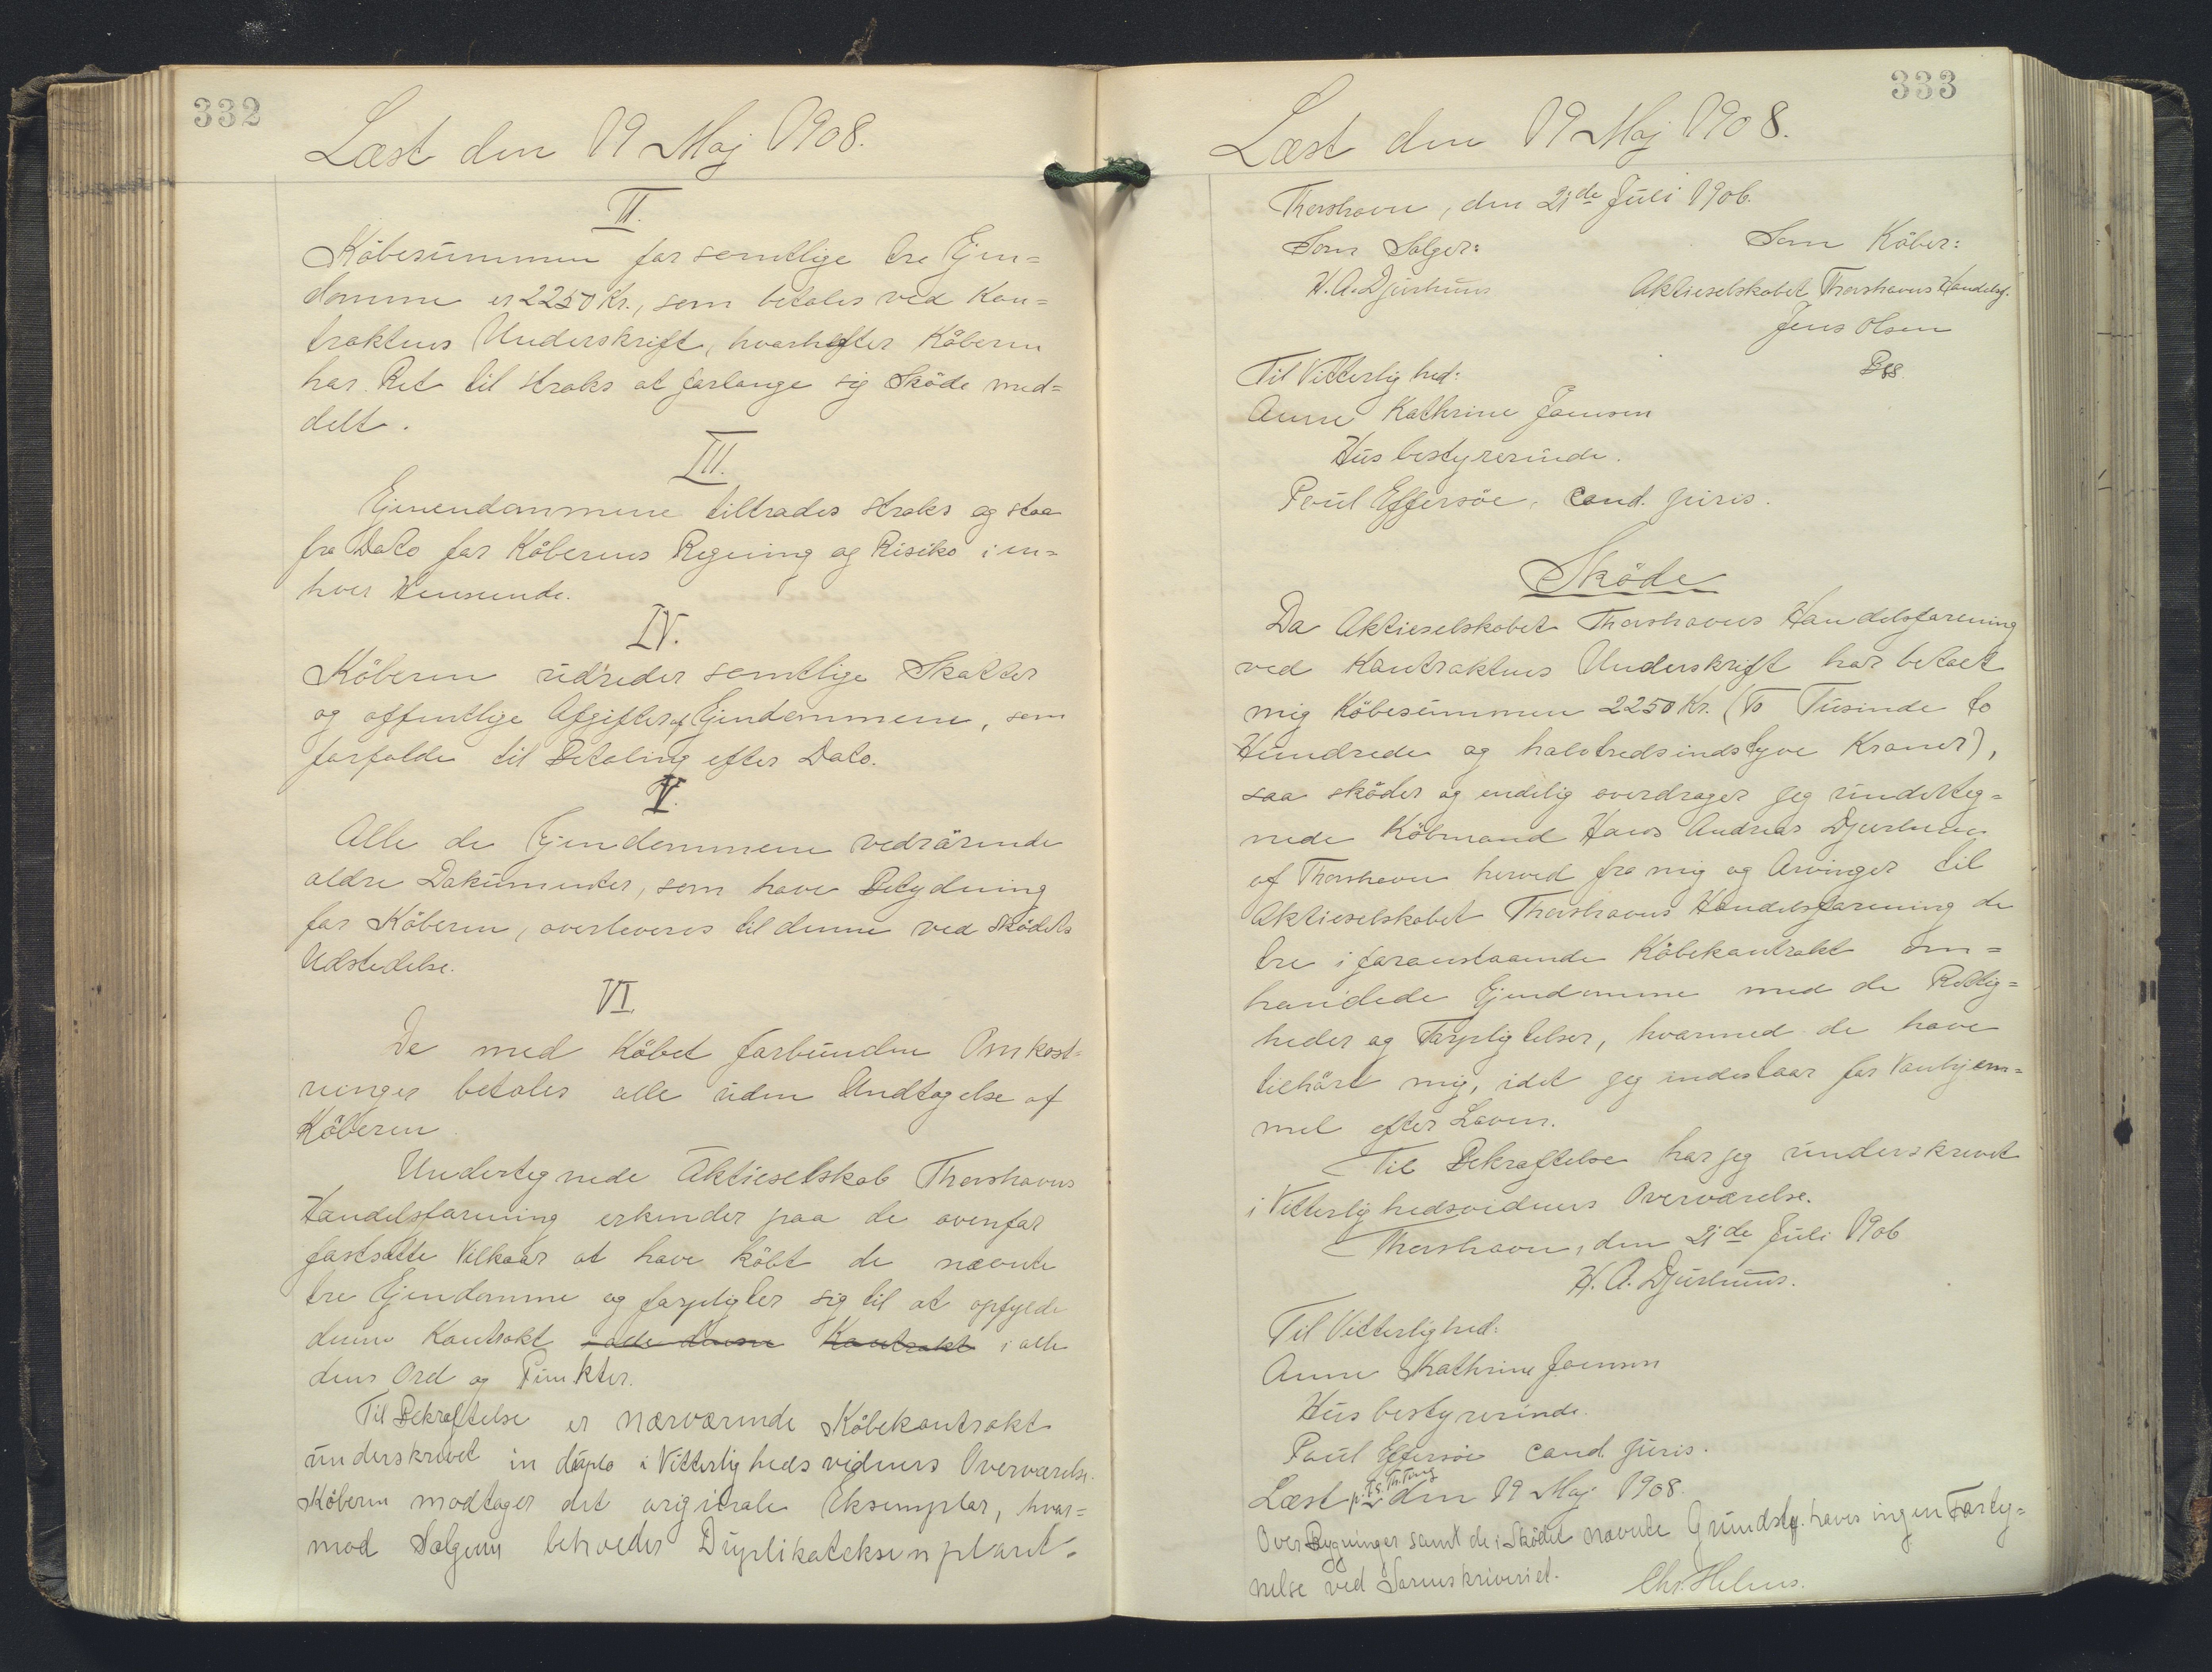 332
Læst den 19 Maj 1908.
II.
Köbesummen for samtlige tre Ejen=
domme er 2250 Kr., som betales ved Kon=
traktens Underskrift, hvorhefter Köberen
har Ret til straks at forlange sig Sköde med=
delt.
III.
Ejenendommene tiltrædes straks og staa
fra Dato for Köberens Regning og Risiko i en=
hver Henseende.
IV.
Köberen udreder samtlige Skatter
og offentlige Afgifter af Ejendommene, som
forfalde til Betaling efter Dato.
V.
Alle de Ejendommene vedrörende
ældre Dokumenter, som have Betydning
for Köberen, overleveres til denne ved Sködets
Udstedelse.
VI.
De med Köbet forbundne Omkost=
ninger betales alle uden Undtagelse af
Köberen
Undertegnede Aktieselskab Thorshavns
Handelsforening erkender paa de ovenfor
fastsatte Vilkaar at have köbt de nævnte
tre Ejendomme og forpligter sig til at opfylde
denne Kontrakt i alle denne Kontrakt i alle
dens Ord og Punkter.
Til Bekræftelse er nærværende Köbekontrakt
underskrevet in duplo i Vitterlighedsvidners Overværelse.
Köberen modtager det originale Eksemplar, hvor=
mod Sælgeren beholder Duplikateksemplaret.
333
Læst den 19 Maj 1908.
Thorshavn, den 21de Juli 1906.
Som Sælger: Som Köber:
H. A. Djurhuus Aktieselskabet Thorshavns Handelsf.
Jens Olsen
Bss.
Til Vitterlighed:
Anne Kathrine Joensen
Husbestyrerinde.
Poul Effersöe, cand. juris.
Sköde
Da Aktieselskabet Thorshavns Handelsforening
ved Kontraktens Underskrift har betalt
mig Köbesummen 2250 Kr. (To Tusinde to
Hundrede og halvtredsindstyve Kroner),
saa sköder og endelig overdrager jeg underteg=
nede Köbmand Hans Andreas Djurhuus
af Thorshavn herved fra mig og Arvinger til
Aktieselskabet Thorshavns Handelsforening de
tre i foranstaaende Köbekontrakt om=
handlede Ejendomme med de Rettig=
heder og Forpligtelser, hvormed de have
tilhört mig, idet jeg indestaar for Vanhjem=
mel efter Loven.
Til Bekræftelse har jeg underskrevet
i Vitterlighedsvidners Overværelse.
Thorshavn, den 21de Juli 1906
H. A. Djurhuus.
Til Vitterlighed:
Anne Kathrine Joensen
Husbestyrerinde.
Poul Effersöe cand. juris.
Læst p. S. S. Th. Ting den 19 Maj 1908.
Over Bygninger samt de i Sködet nævnte Grundsty. haves ingen Forteg=
nelse ved Sorenskriveriet. Chr. Helms.